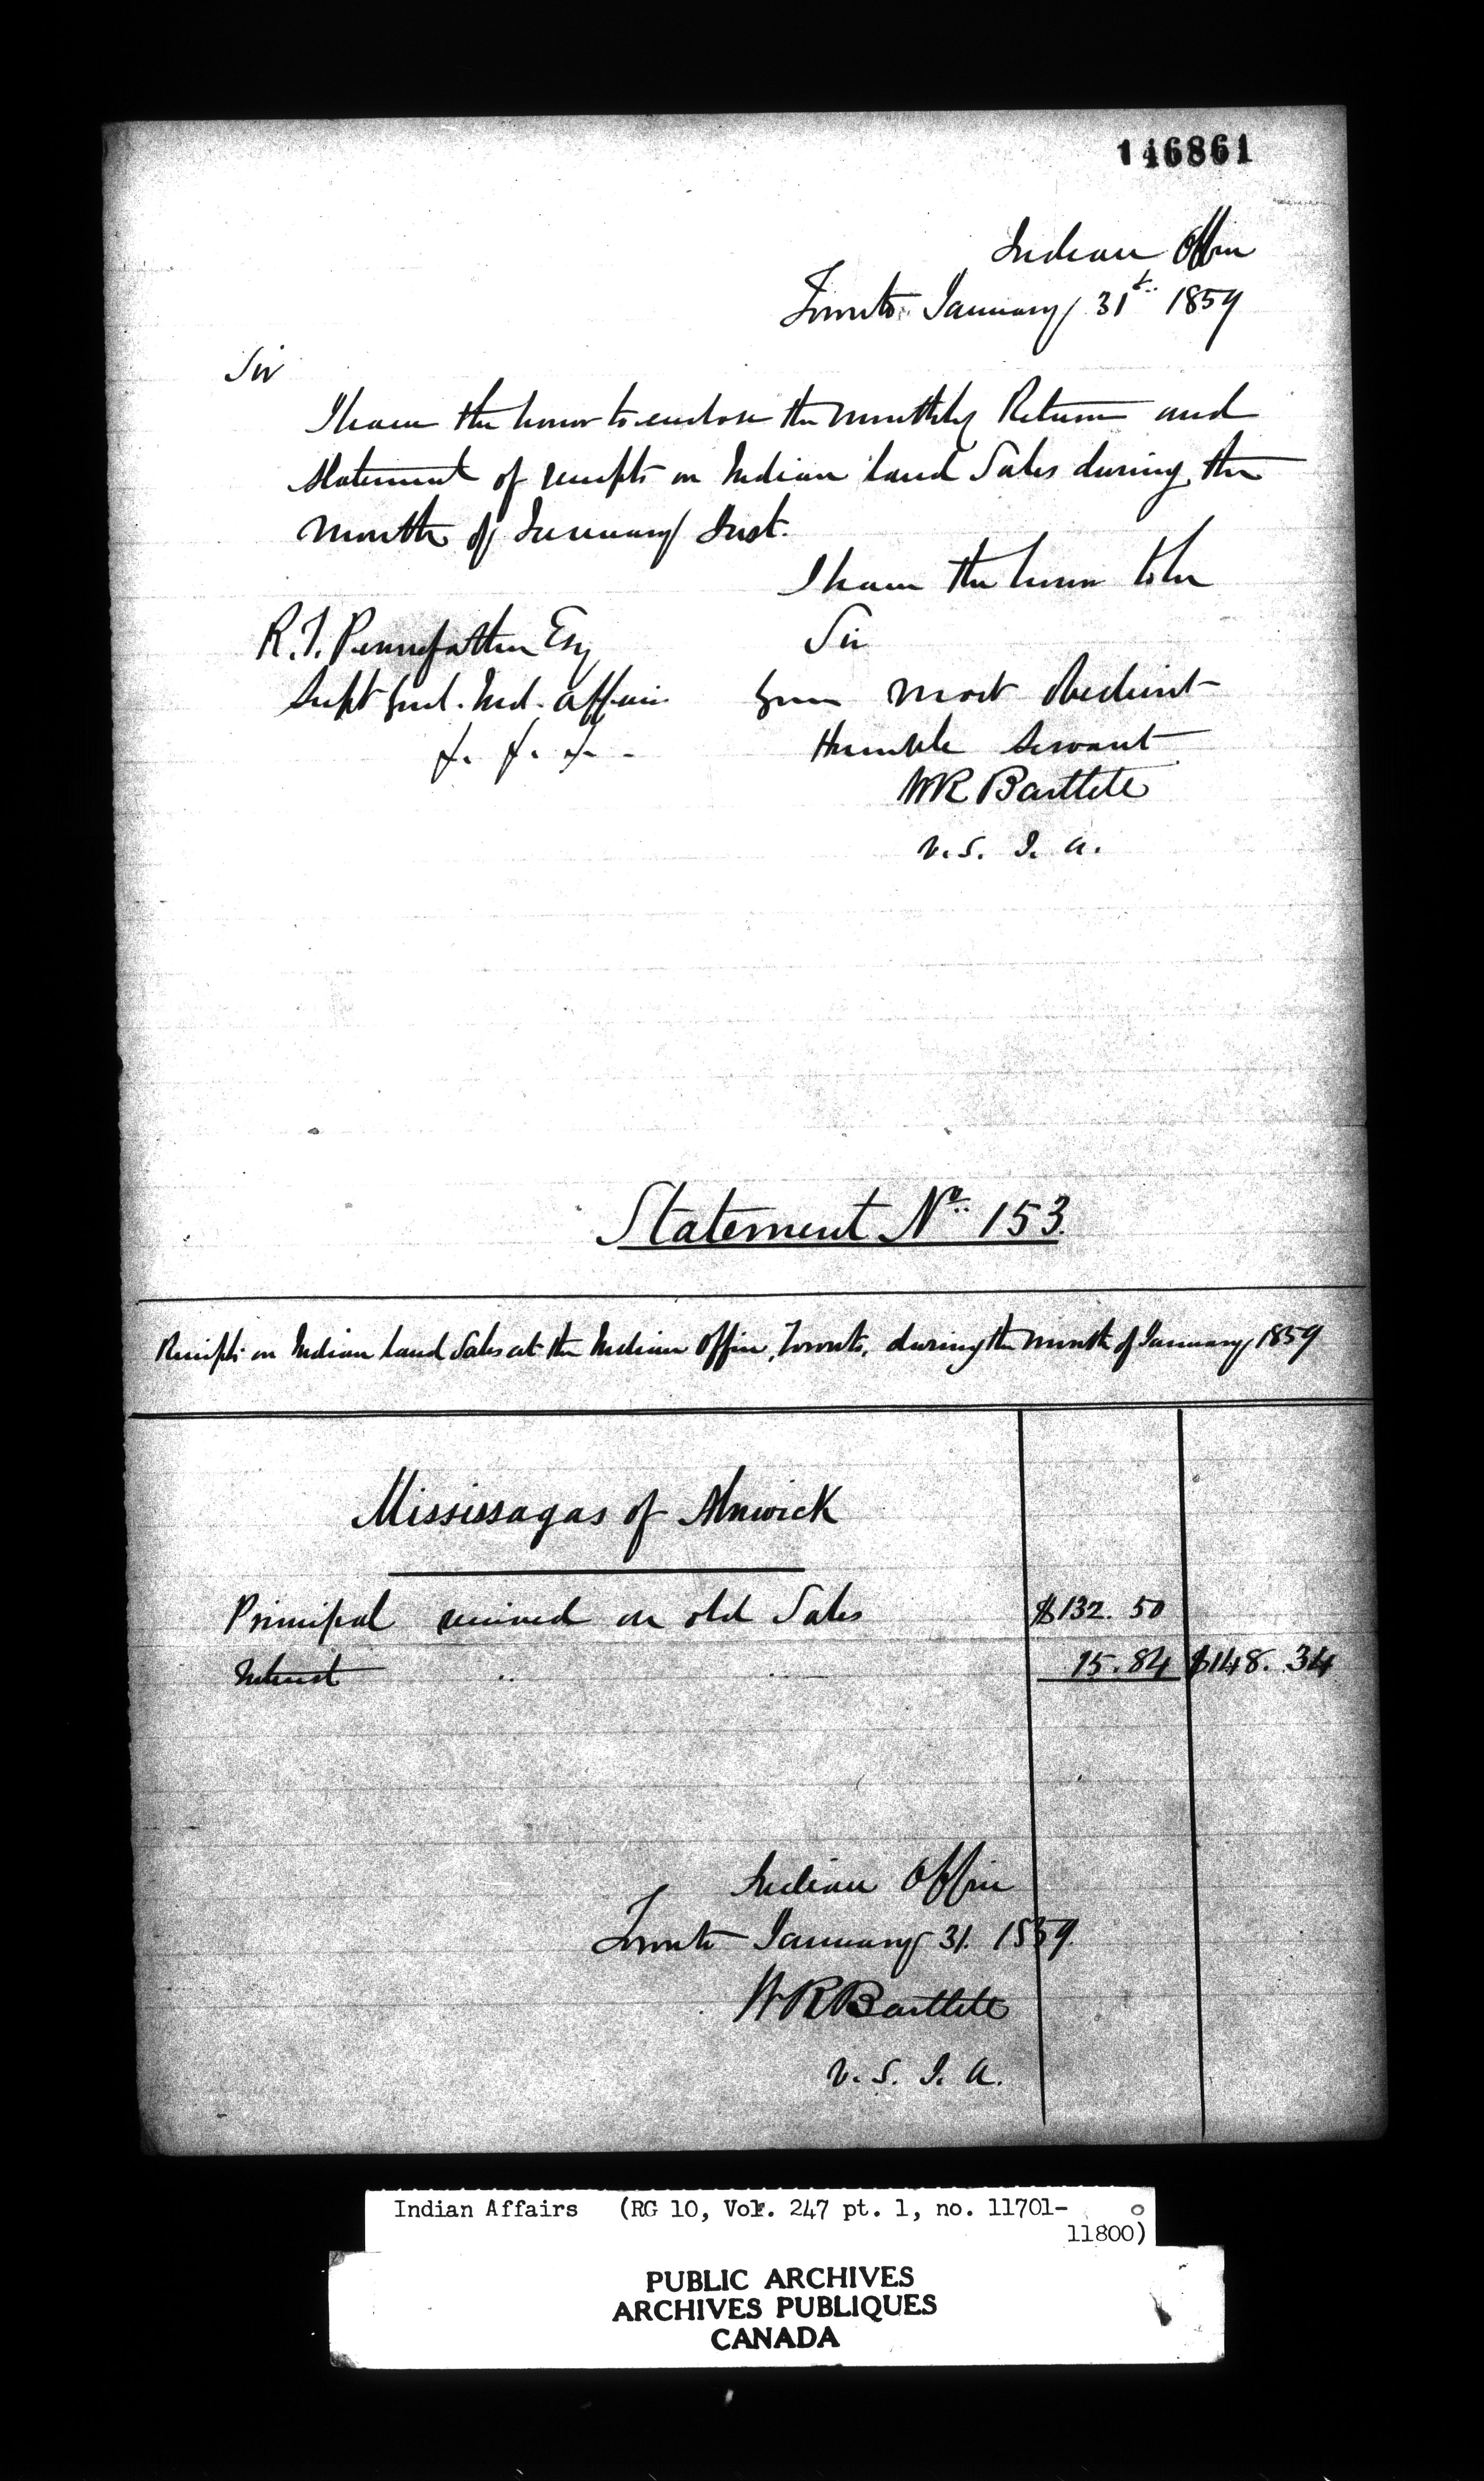 146861
Indian Office
Toronto January 31st. 1859
Sir
I have the honor to enclose the monthly Return and
Statement of receipts on Indian land Sales during the
month of January Inst.
I have the honor to be
R.T. Pennefather Esq
Sir
Supt Genl. Ind. Affairs
Your most obedient
&. &. &.
Humble Servant
WR Bartlett
V. S. I. A.
Statement No. 153.
Receipts on Indian land Sales at the Indian Office, Toronto, during the month of January 1859
Mississagas of Alnwick
Principal received on old Sales $132. 50
Interest .. .. 15. 84 $148. 34
Indian Office
Toronto January 31. 1859.
WR Bartlett
V. S. I. A.
Indian Affairs (RG 10, Vol. 247 pt. 1, no. 11701-
11800)
PUBLIC ARCHIVES
ARCHIVES PUBLIQUES
CANADA